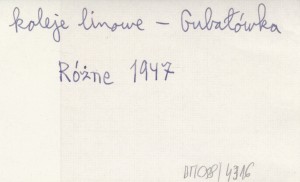 koleje linowe – Gubałówka
Różne 1947
4316